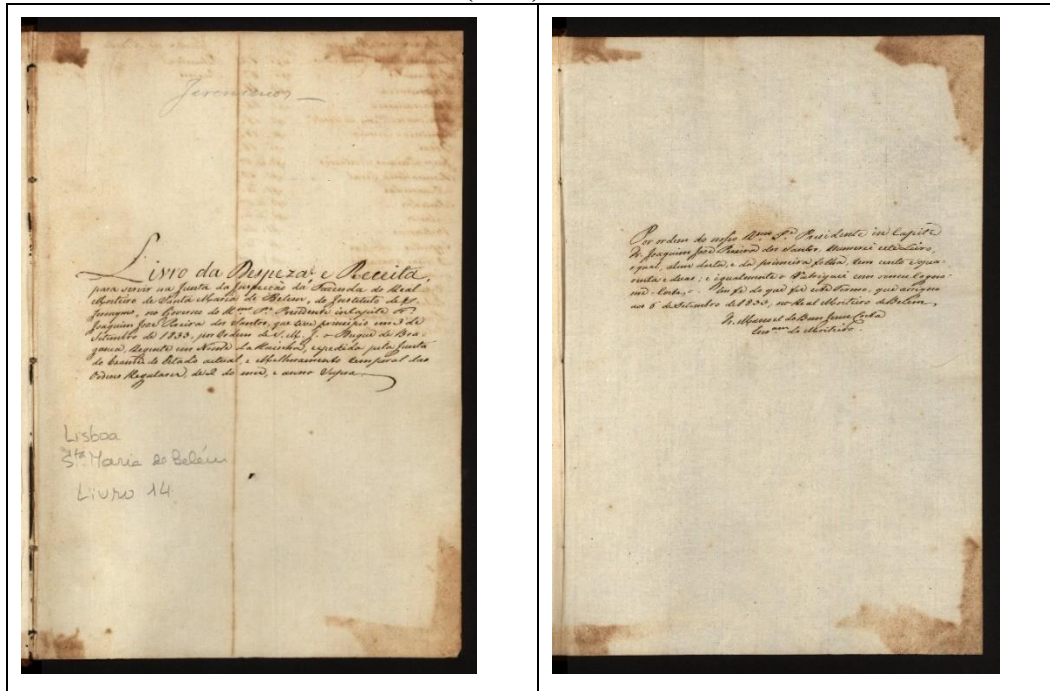 Jeronimos
Livro da Despeza, e Receita,
para servir na Junta da Inspecção da Fazenda do Real
Mosteiro de Santa Maria de Belem, do Instituto de S.
Jeronymo, no Governo do R.mo P.e Presidente in Capite Fr.
Joaquim José Pereira dos Santos, que teve principio em 3 de
Setembro de 1833, por Ordem de S. M. I. o Duque de Bra-
gança, Regente em Nome da Rainha, expedida pela Junta
do Exame do Estado actual, e Melhoramento temporal das
Ordens Regulares, de 2 do mez, e anno Supra.
Lisboa
Sta. Maria de Belém
Livro 14
Por ordem do nosso R.mo P.e Presidente in Capite
Fr. Joaquim José Pereira dos Santos, numerei este Livro,
o qual, alem desta, e da primeira folha, tem cento e qua-
renta e duas; e igualmente o Rubriquei com o meu cogno-
me - Costa, - Em fé do que fiz este termo, que assignei
aos 6 de Setembro de 1833, no Real Mosteiro de Belem,
Fr. Manoel do Bom Jesus Costa
do Mosteiro.